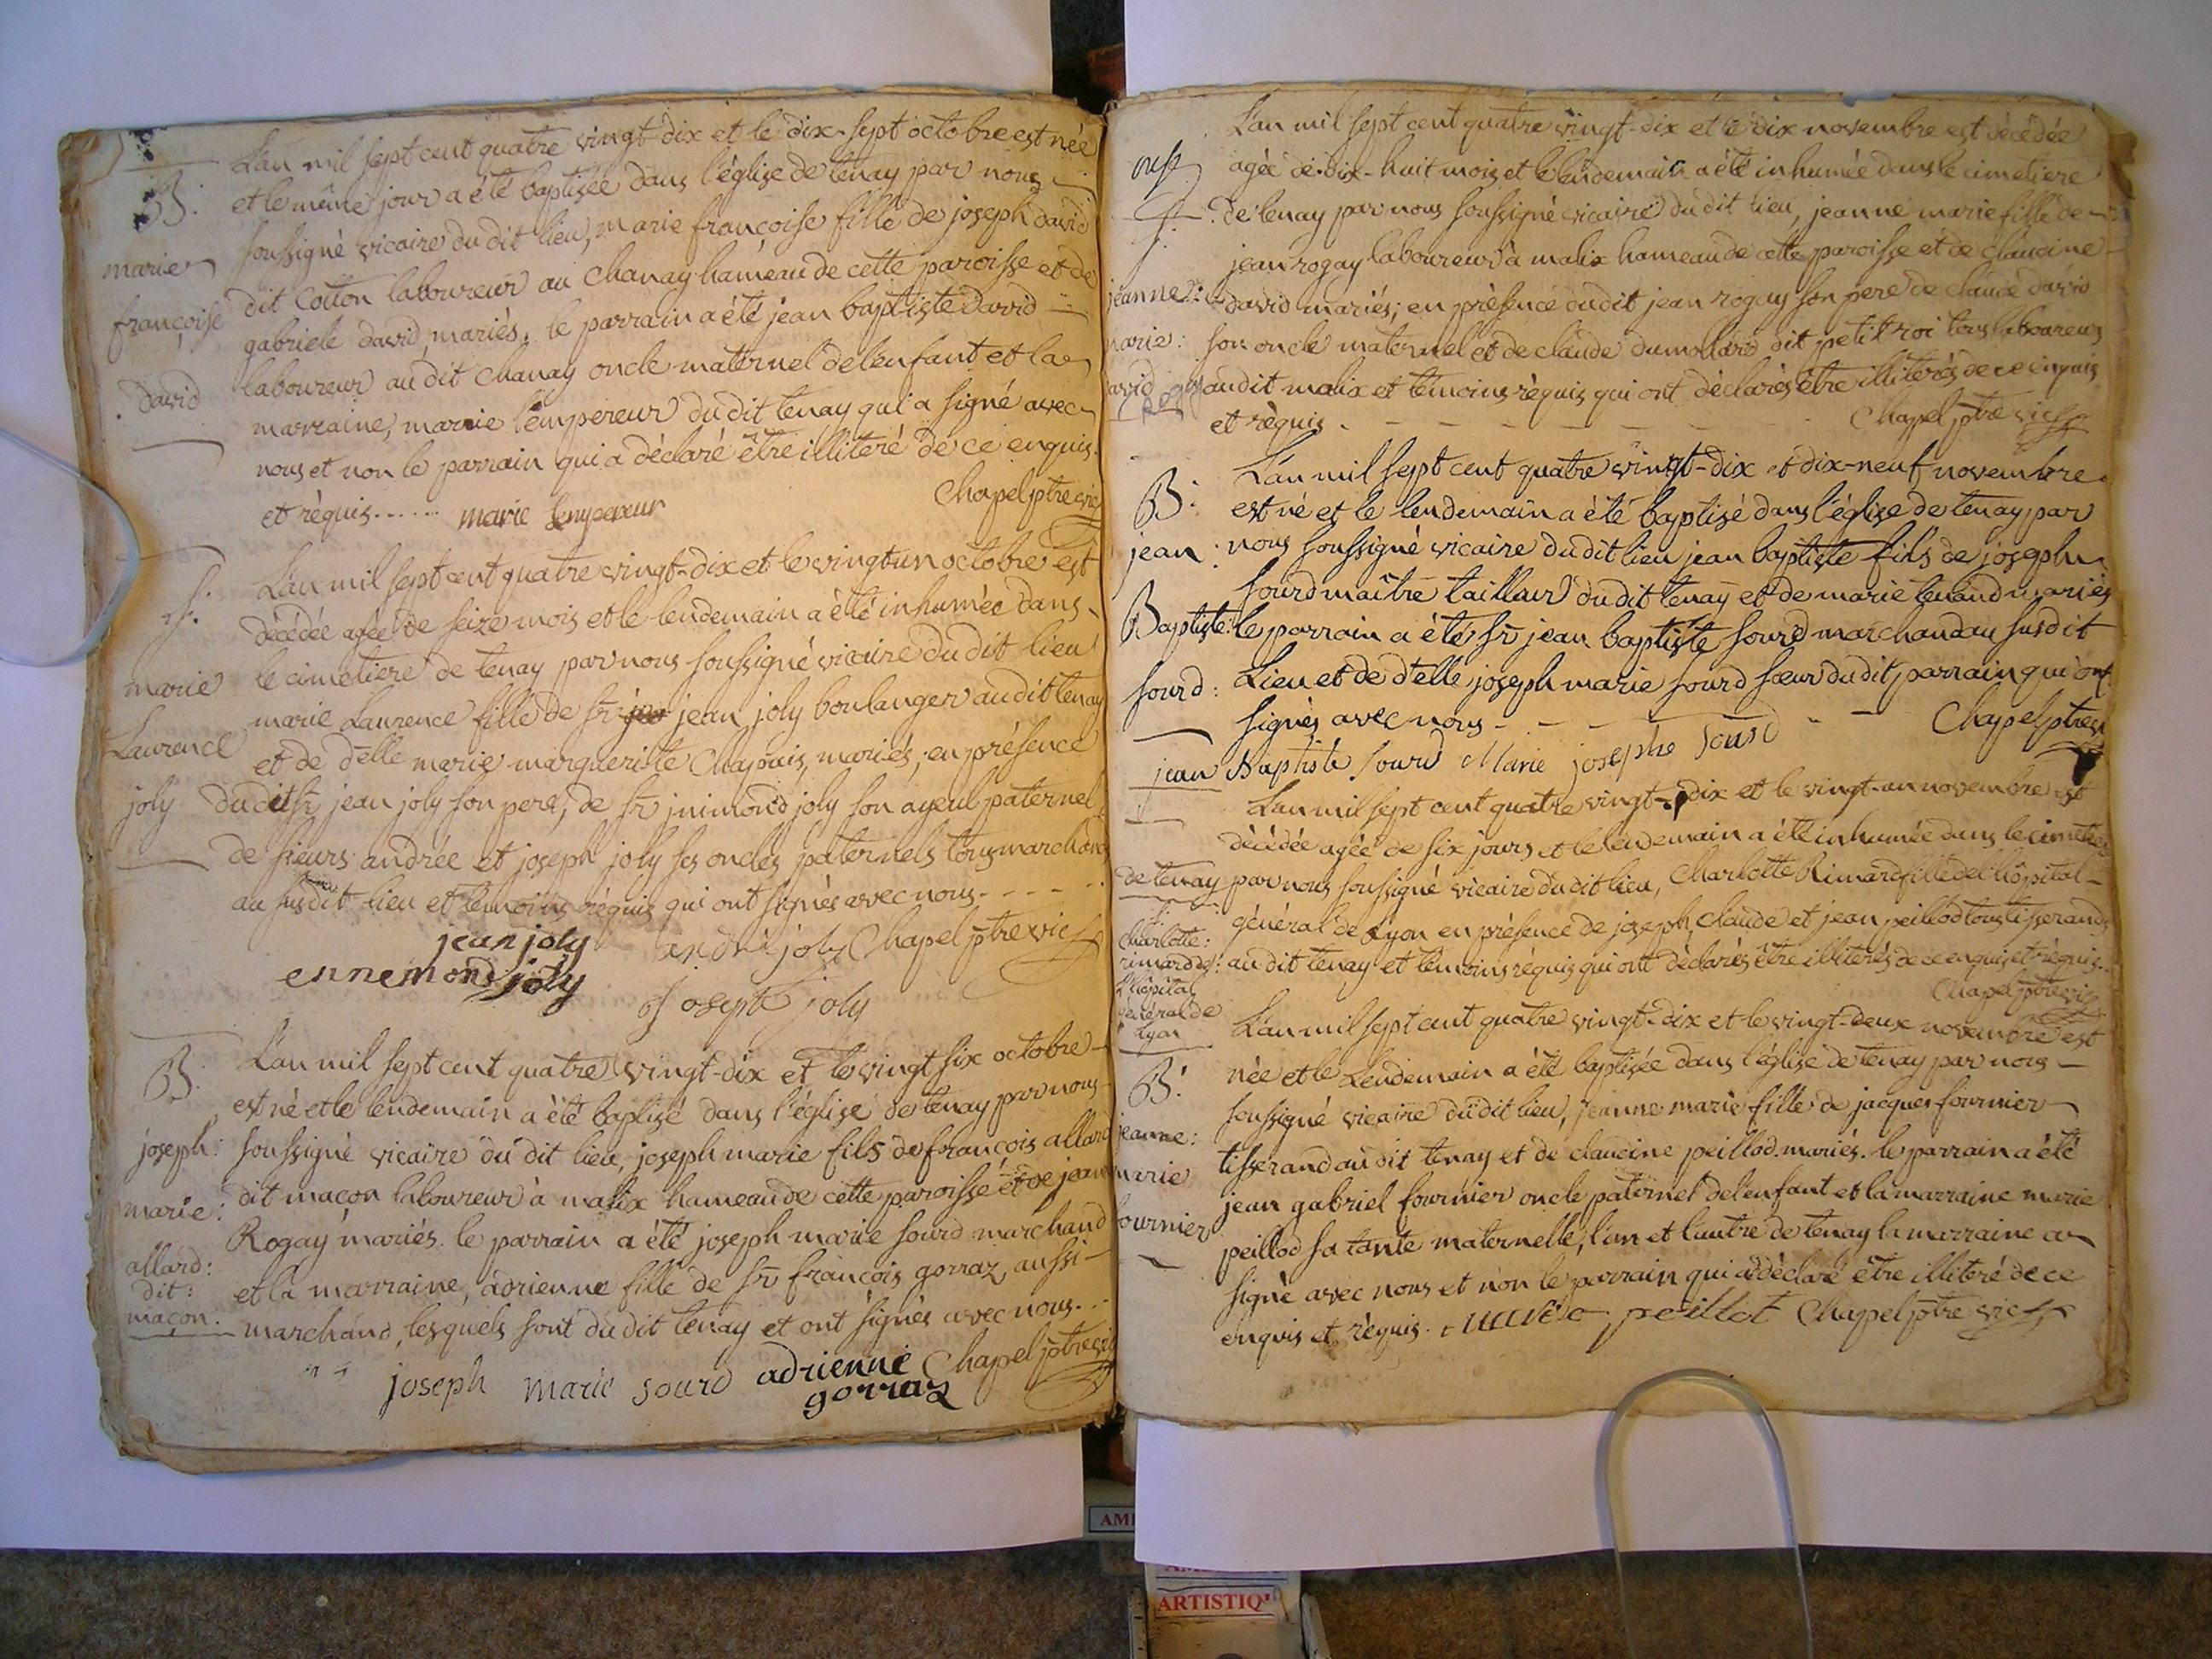 L'an mil sept cent quatre vingt-dix et le dix-sept octobre est née
B: et le même jour a été baptisée dans l'église de tenay par nous
soussigné vicaire du dit lieu, marie françoise fille de joseph david
marie dit Cotton laboureur au Chanay hameau de cette paroisse et de
françoise gabriele david mariés. le parrain a été jean baptiste David
david laboureur au dit Chanay oncle maternel de l'enfant et la
marraine, marie l'empereur du dit tenay qui a signé avec
nous et non le parrain qui a déclaré être illiteré de ce enquis.
et réquis...... marie lempereur Chapel ptre vic
L'an mil sept cent quatre vingt-dix et le vingt un octobre est
S. décédée agée de seize mois et le lendemain a été inhumée dans
marie le cimetiere de tenay par nous soussigné vicaire du dit lieu
marie Laurence fille de sr jean joly boulanger au dit tenay
Laurence et de delle marie marguerite Chapuis, mariés, en présence
joly du dit sr jean joly son pere, de sr jnimond joly son ayeul paternel
de sieurs andrée et joseph joly ses oncles paternels tous marchands
au susdit lieu et temoins réquis qui ont signés avec nous - - - -
jean joly andré joly Chapel ptre vic
ennemond joly
Joseph joly
L'an mil sept cent quatre vingt-dix et le vingt six octobre
B: est né et le lendemain a été baptisé dans l'église de tenay par nous
joseph: soussigné vicaire du dit lieu, joseph marie fils de françois allard
marie: dit maçon laboureur à malix hameau de cette paroisse et de jeanne
Rogay mariés. le parrain a été joseph marie sourd marchand
allard: et la marraine, adrienne fille de sr françois gorraz, aussi
dit:
maçon: marchand, lesquels sont du dit tenay et ont signés avec nous...
joseph marie sourd adrienne Chapel ptre vic
gorraz
L'an mil sept cent quatre vingt-dix et le dix novembre est décédée
agée de dix-huit mois et le lendemain a été inhumée dans le cimetiere
S. de tenay par nous soussigné vicaire du dit lieu, jeanne marie fille de
jean rogay laboureur à malix hameau de cette paroisse et de claudine
jeanne: david mariés; en présence du dit jean rogay son pere de claude david
marie: son oncle maternel et de claude dumollard dit petit roi tous laboureurs
au dit malix et temoins réquis qui ont déclarés être illiterés de ce enquis
et réquis - - - - - - Chapel ptre vic
L'an mil sept cent quatre vingt-dix et dix-neuf novembre
B: est né et le lendemain a été baptisé dans l'église de tenay par
jean: nous soussigné vicaire du dit lieu jean baptiste fils de joseph
sourd maître tailleur du dit tenay et de marie tenand mariés
Baptiste: le parrain a été sr jean baptiste sourd marchand au susdit
sourd: Lieu et de delle joseph marie sourd sœur du dit parrain qui ont
signés avec nous - - - - - Chapel ptre vic
jean Baptiste sourd Marie josephe sourd
L'an mil sept cent quatre vingt-dix et le vingt-un novembre est
décédée agée de six jours et le lendemain a été inhumée dans le cimetiere
de tenay par nous soussigné vicaire du dit lieu, Charlotte Rimard fille de l'hôpital
S. général de Lyon en présence de joseph, claude et jean peillod tous tisserands
Charlotte:
rimard de: au dit tenay et temoins réquis qui ont déclarés être illiterés de ce enquis et réquis.
l'hôpital Chapel ptre vic
général de
Lyon L'an mil sept cent quatre vingt-dix et le vingt-deux novembre est
B: née et le Lendemain a été baptisée dans l'église de tenay par nous
soussigné vicaire du dit lieu, jeanne marie fille de jacques fournier
jeanne: tisserand au dit tenay et de claudine peillod mariés. le parrain a été
marie jean gabriel fournier oncle paternel de l'enfant et la marraine marie
fournier peillod sa tante maternelle, l'un et l'autre de tenay la marraine a
signé avec nous et non le parrain qui a déclaré être illiteré de ce
enquis et réquis. marie peillot Chapel ptre vic
AMI
ARTISTIQ